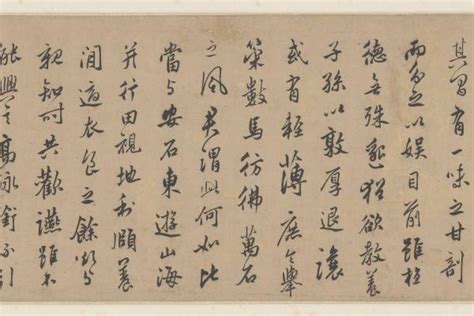 其間有一味之甘剖
而分之以娛目前雖植
德無殊邈猶欲教養
子孫以敦厚退讓
或有輕薄庶令舉
策數馬彷彿萬石
之風君謂此何如比
當與安石東遊山海
并行田視地利頤養
閒適衣食之餘欲與
親知時共歡讌雖不
能興言高詠銜杯引